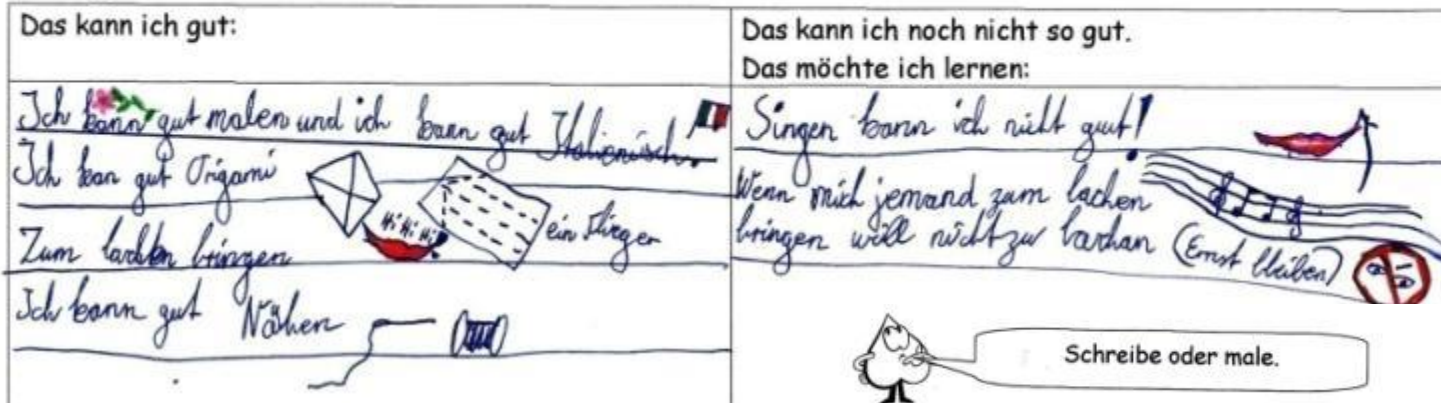 Das kann ich gut:
Ich kann gut malen und ich kann gut Italienisch.
Ich kan gut Origami
Hi Hi Hi
ein Flieger
Zum lachen bringen
Ich kann gut Nähen
Das kann ich noch nicht so gut.
Das möchte ich lernen:
Singen kann ich nicht gut!
Wenn mich jemand zum lachen
bringen will nicht zu lachan (Ernst bleiben)
Schreibe oder male.